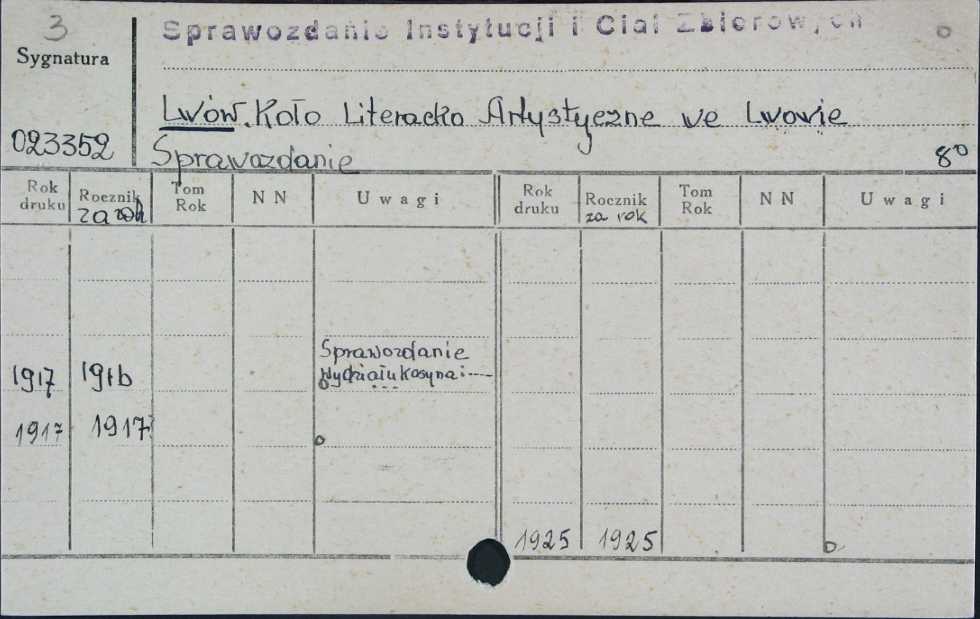 3
Sprawozdanie Instytucji i Ciał Zbiorowych
Sygnatura
Lwów. Koło Literacko Artystyczne we Lwowie
023352
Sprawozdanie
8°
Rok druku Rocznik za rok Tom Rok NN Uwagi Rok druku Rocznik za rok Tom Rok NN Uwagi
Sprawozdanie
1917 1916 Wydziału Kasyna i
1917 1917
1925 1925